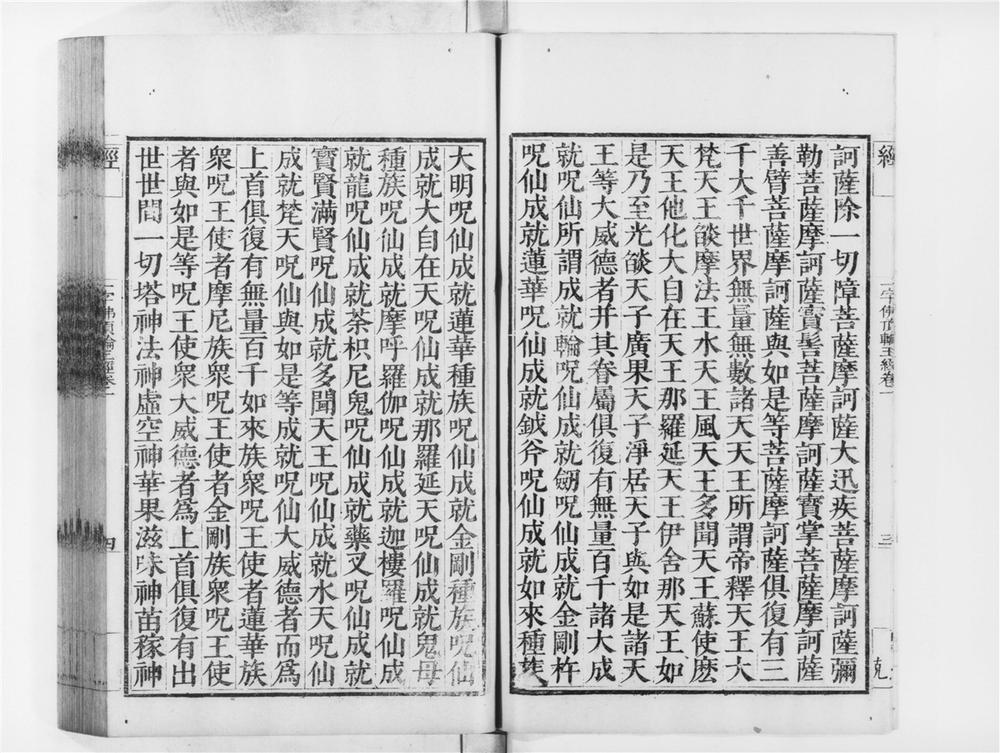 經
一字佛頂輪王經卷一
三
訶薩除一切障菩薩摩訶薩大迅疾菩薩摩訶薩彌
勒菩薩摩訶薩寶髻菩薩摩訶薩寶掌菩薩摩訶薩
善臂菩薩摩訶薩與如是等菩薩摩訶薩俱復有三
千大千世界無量無數諸天天王所謂帝釋天王大
梵天王燄摩法王水天王風天王多聞天王蘇使麼
天王他化大自在天王那羅延天王伊舍那天王如
是乃至光燄天子廣果天子淨居天子與如是諸天
王等大威德者并其眷屬俱復有無量百千諸大成
就呪仙所謂成就輪呪仙成就劒呪仙成就金剛杵
呪仙成就蓮華呪仙成就鉞斧呪仙成就如來種族
大明呪仙成就蓮華種族呪仙成就金剛種族呪仙
成就大自在天呪仙成就那羅延天呪仙成就鬼母
種族呪仙成就摩呼羅伽呪仙成就迦樓羅呪仙成
就龍呪仙成就茶枳尼鬼呪仙成就藥叉呪仙成就
寶賢滿賢呪仙成就多聞天王呪仙成就水天呪仙
成就梵天呪仙與如是等成就呪仙大威德者而爲
上首俱復有無量百千如來族衆呪王使者蓮華族
衆呪王使者摩尼族衆呪王使者金剛族衆呪王使
者與如是等呪王使衆大威德者爲上首俱復有出
世世間一切塔神法神虛空神華果滋味神苗稼神
經
一字佛頂輪王經卷一
四